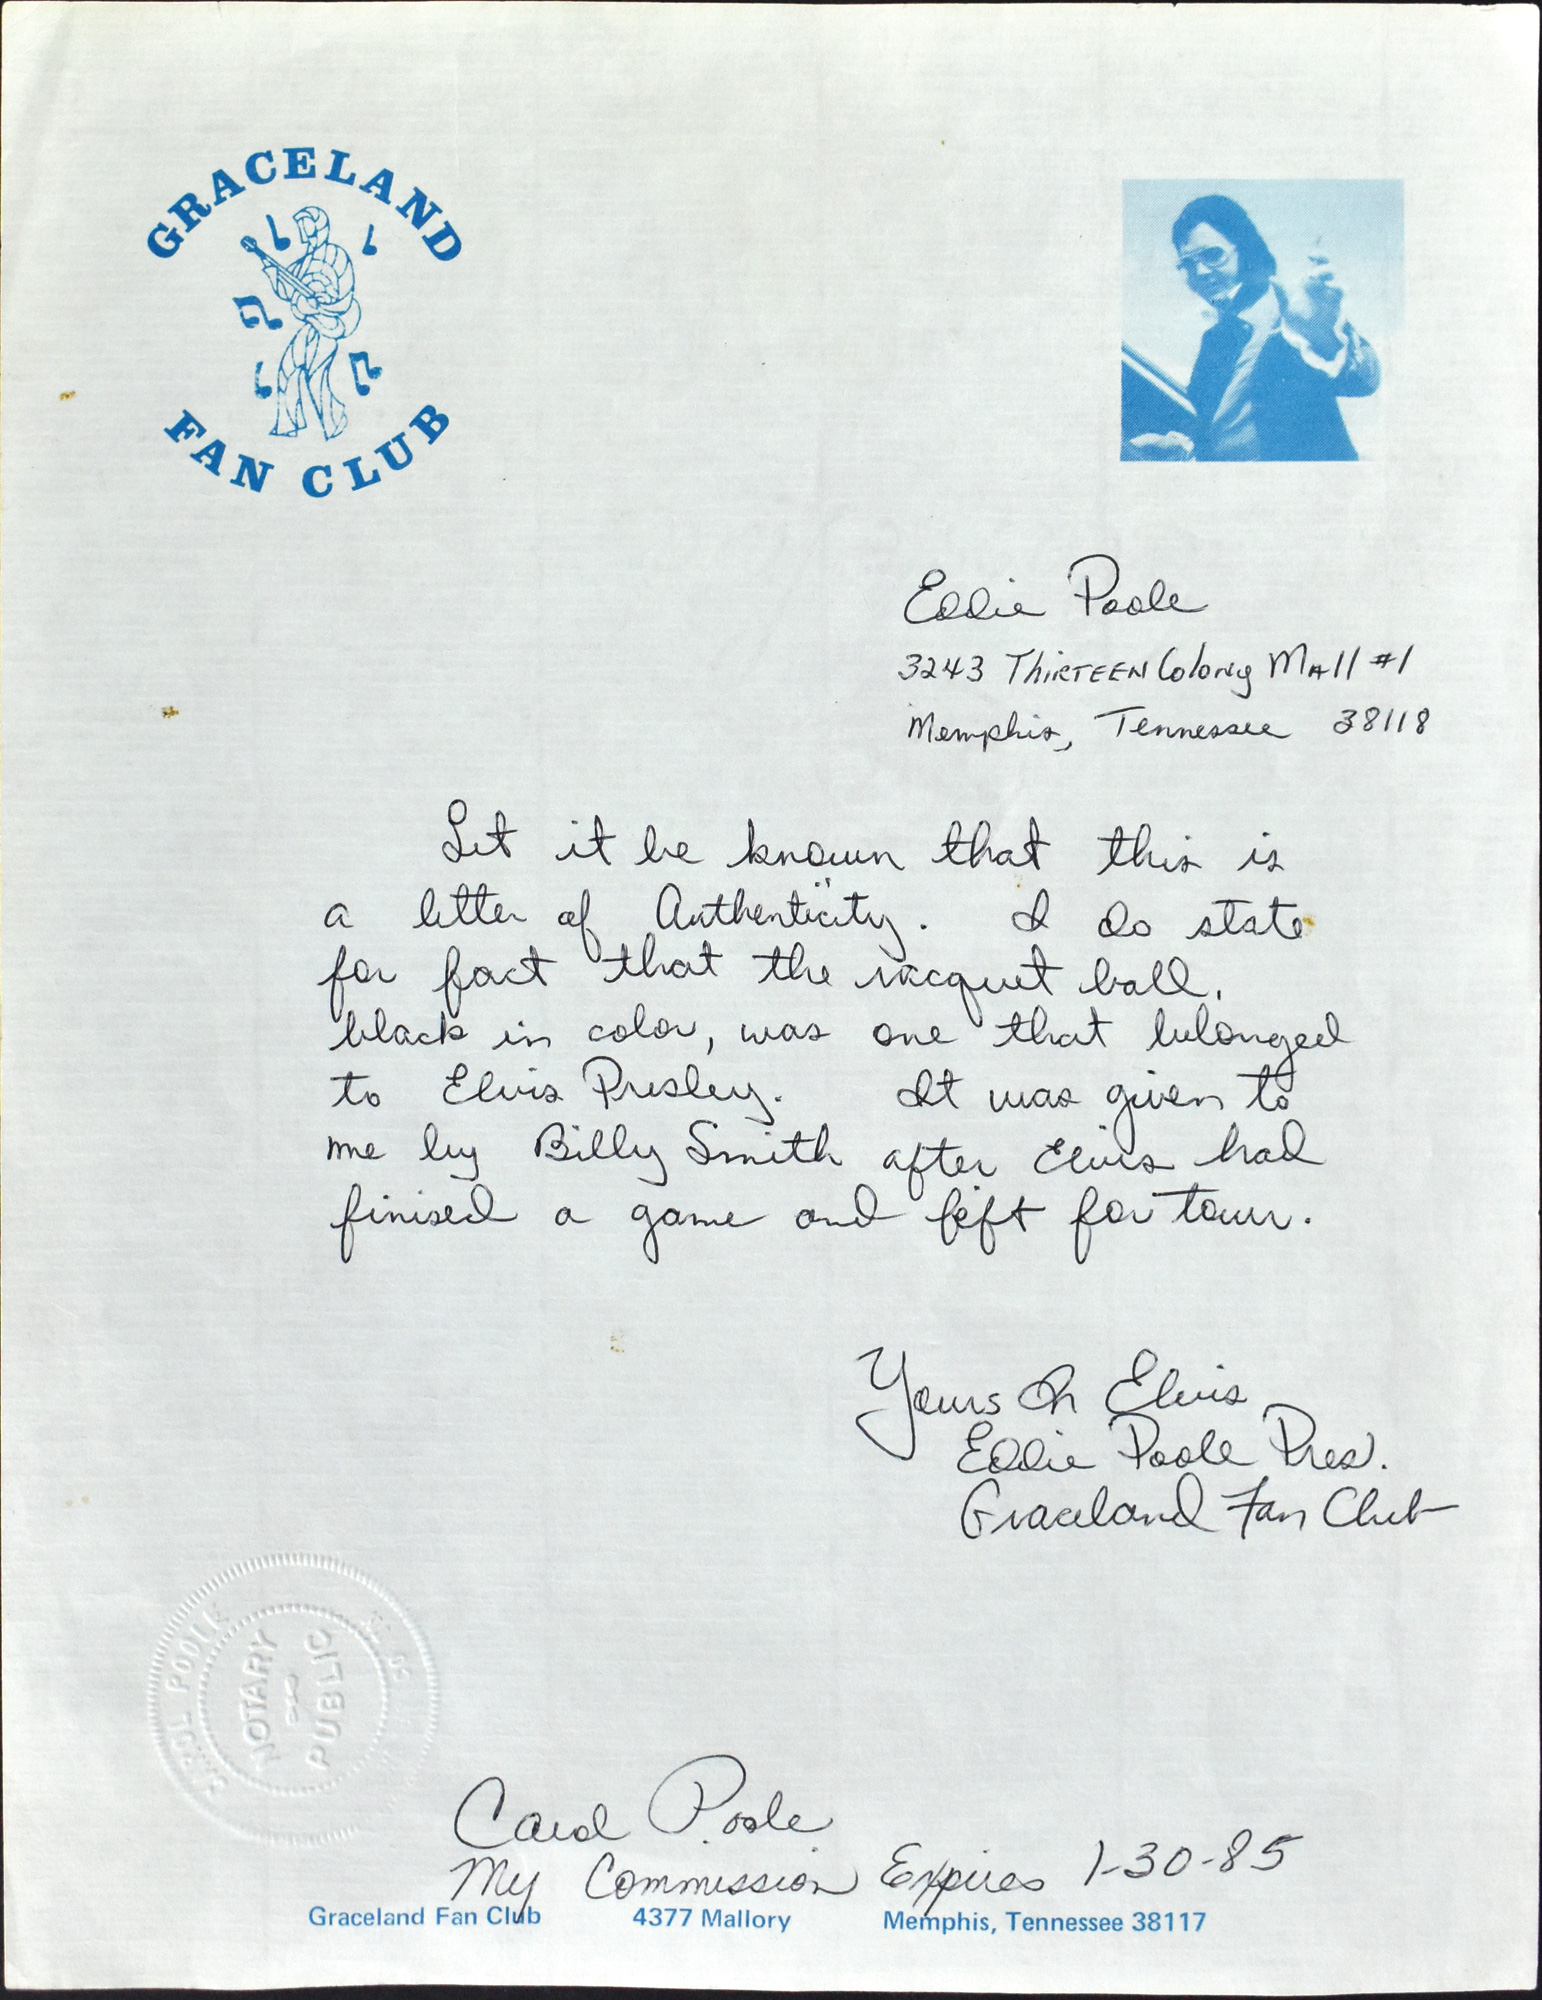 GRACELAND
FAN CLUB
Eddie Poole
3243 THIRTEEN Colony MAll #1
Memphis, Tennessee 38118
Let it be known that this is
a letter of Authenticity. I do state
for fact that the racquet ball,
black in color, was one that belonged
to Elvis Presley. It was given to
me by Billy Smith after Elvis had
finised a game and left for tour.
Yours in Elvis
Eddie Poole Pres.
Graceland Fan Club
CAROL POOLE
NOTARY
PUBLIC
Carol Poole
My Commission Expires 1-30-85
Graceland Fan Club 4377 Mallory Memphis, Tennessee 38117